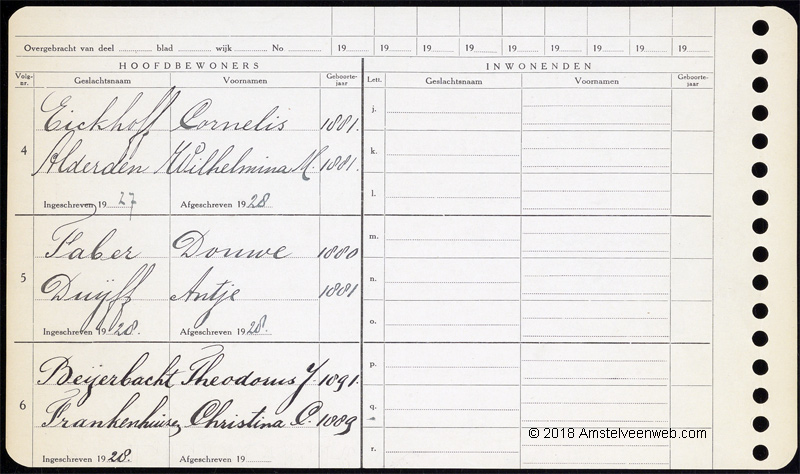 Overgebracht van deel ............ blad ............ wijk ............ No ............ 19...... 19...... 19...... 19...... 19...... 19...... 19...... 19...... 19......
HOOFDBEWONERS INWONENDEN
Volg-nr. Geslachtsnaam Voornamen Geboorte-jaar Lett. Geslachtsnaam Voornamen Geboorte-jaar
Eickhoff Cornelis 1881. j.
4 Alderden Wilhelmina M. 1881. k.
Ingeschreven 19 27 Afgeschreven 19 28 l.
Faber Douwe 1880 m.
5 Duijff Antje 1881 n.
Ingeschreven 19 28. Afgeschreven 19 28. o.
Beijerbacht Theodorus J. 1891. p.
6 Frankenhuizen Christina C. 1889 q.
© 2018 Amstelveenweb.com
Ingeschreven 19 28. Afgeschreven 19...... r.